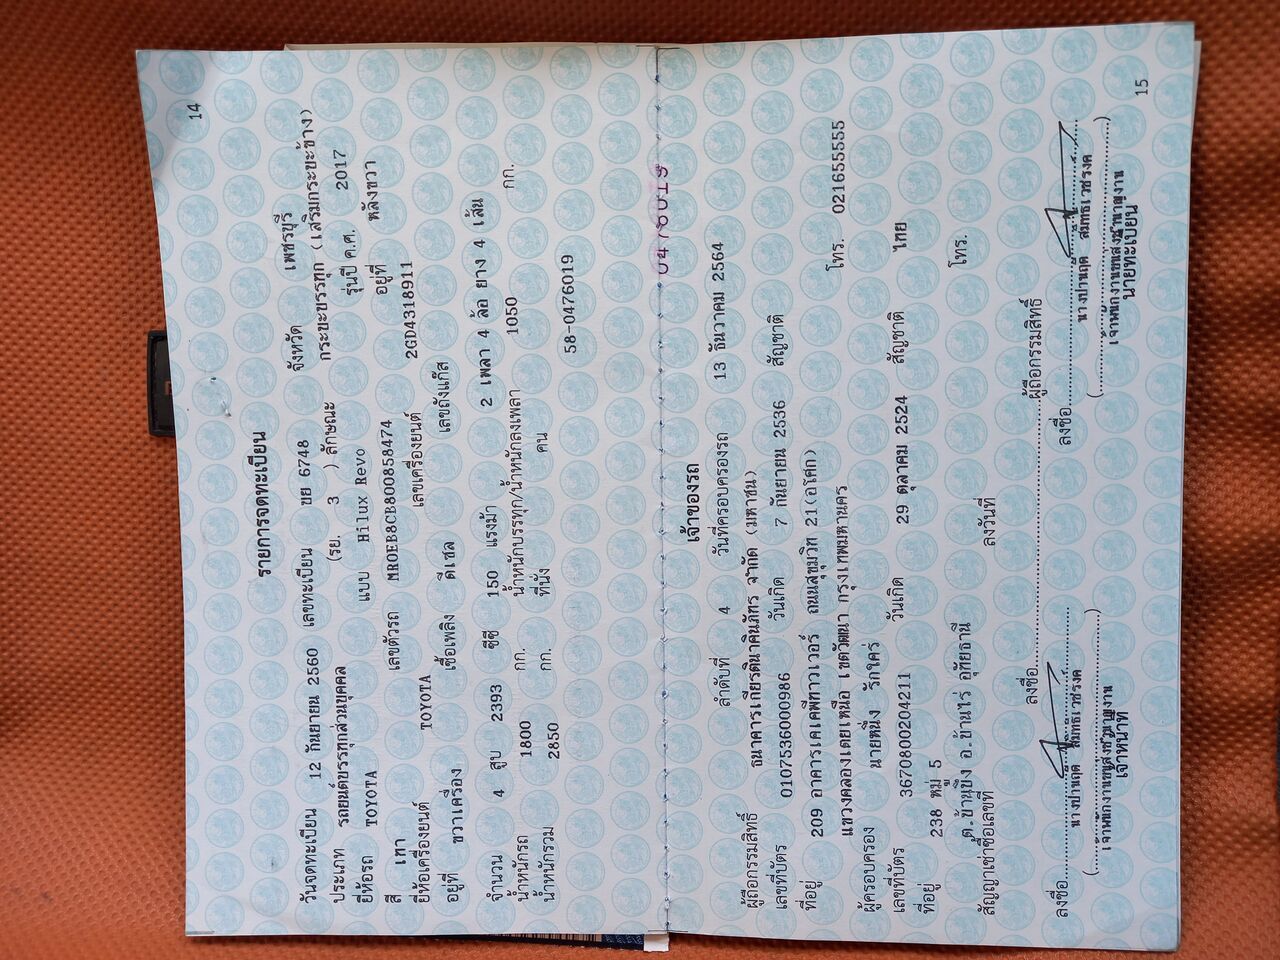 14
รายการจดทะเบียน
วันจดทะเบียน 12 กันยายน 2560 เลขทะเบียน ขย 6748 จังหวัด เพชรบุรี
ประเภท รถยนต์บรรทุกส่วนบุคคล (รย. 3 ) ลักษณะ กระบะบรรทุก (เสริมกระบะข้าง)
ยี่ห้อรถ TOYOTA แบบ Hilux Revo รุ่นปี ค.ศ. 2017
สี เทา เลขตัวรถ MR0EB8CB800858474 อยู่ที่ หลังขวา
ยี่ห้อเครื่องยนต์ TOYOTA เลขเครื่องยนต์ 2GD4318911
อยู่ที่ ขวาเครื่อง เชื้อเพลิง ดีเซล เลขถังแก๊ส
จำนวน 4 สูบ 2393 ซีซี 150 แรงม้า 2 เพลา 4 ล้อ ยาง 4 เส้น
น้ำหนักรถ 1800 กก. น้ำหนักบรรทุก/น้ำหนักลงเพลา 1050 กก.
น้ำหนักรวม 2850 กก. ที่นั่ง คน
58-0476019
0476019
เจ้าของรถ
ลำดับที่ 4 วันที่ครอบครองรถ 13 ธันวาคม 2564
ผู้ถือกรรมสิทธิ์ ธนาคารเกียรตินาคินภัทร จำกัด (มหาชน)
เลขที่บัตร 0107536000986 วันเกิด 7 กันยายน 2536 สัญชาติ
ที่อยู่ 209 อาคารเคเคพีทาวเวอร์ ถนนสุขุมวิท 21(อโศก)
แขวงคลองเตยเหนือ เขตวัฒนา กรุงเทพมหานคร โทร. 021655555
ผู้ครอบครอง นายหนึ่ง รักใคร่
เลขที่บัตร 3670800204211 วันเกิด 29 ตุลาคม 2524 สัญชาติ ไทย
ที่อยู่ 238 หมู่ 5
ต.บ้านบึง อ.บ้านไร่ อุทัยธานี โทร.
สัญญาเช่าซื้อเลขที่ ลงวันที่
ลงชื่อ ผู้ถือกรรมสิทธิ์
ลงชื่อ ลงชื่อ
เจ้าพนักงานขนส่งชำนาญงาน เจ้าพนักงานขนส่งชำนาญงาน
เจ้าหน้าที่ นายทะเบียน
15